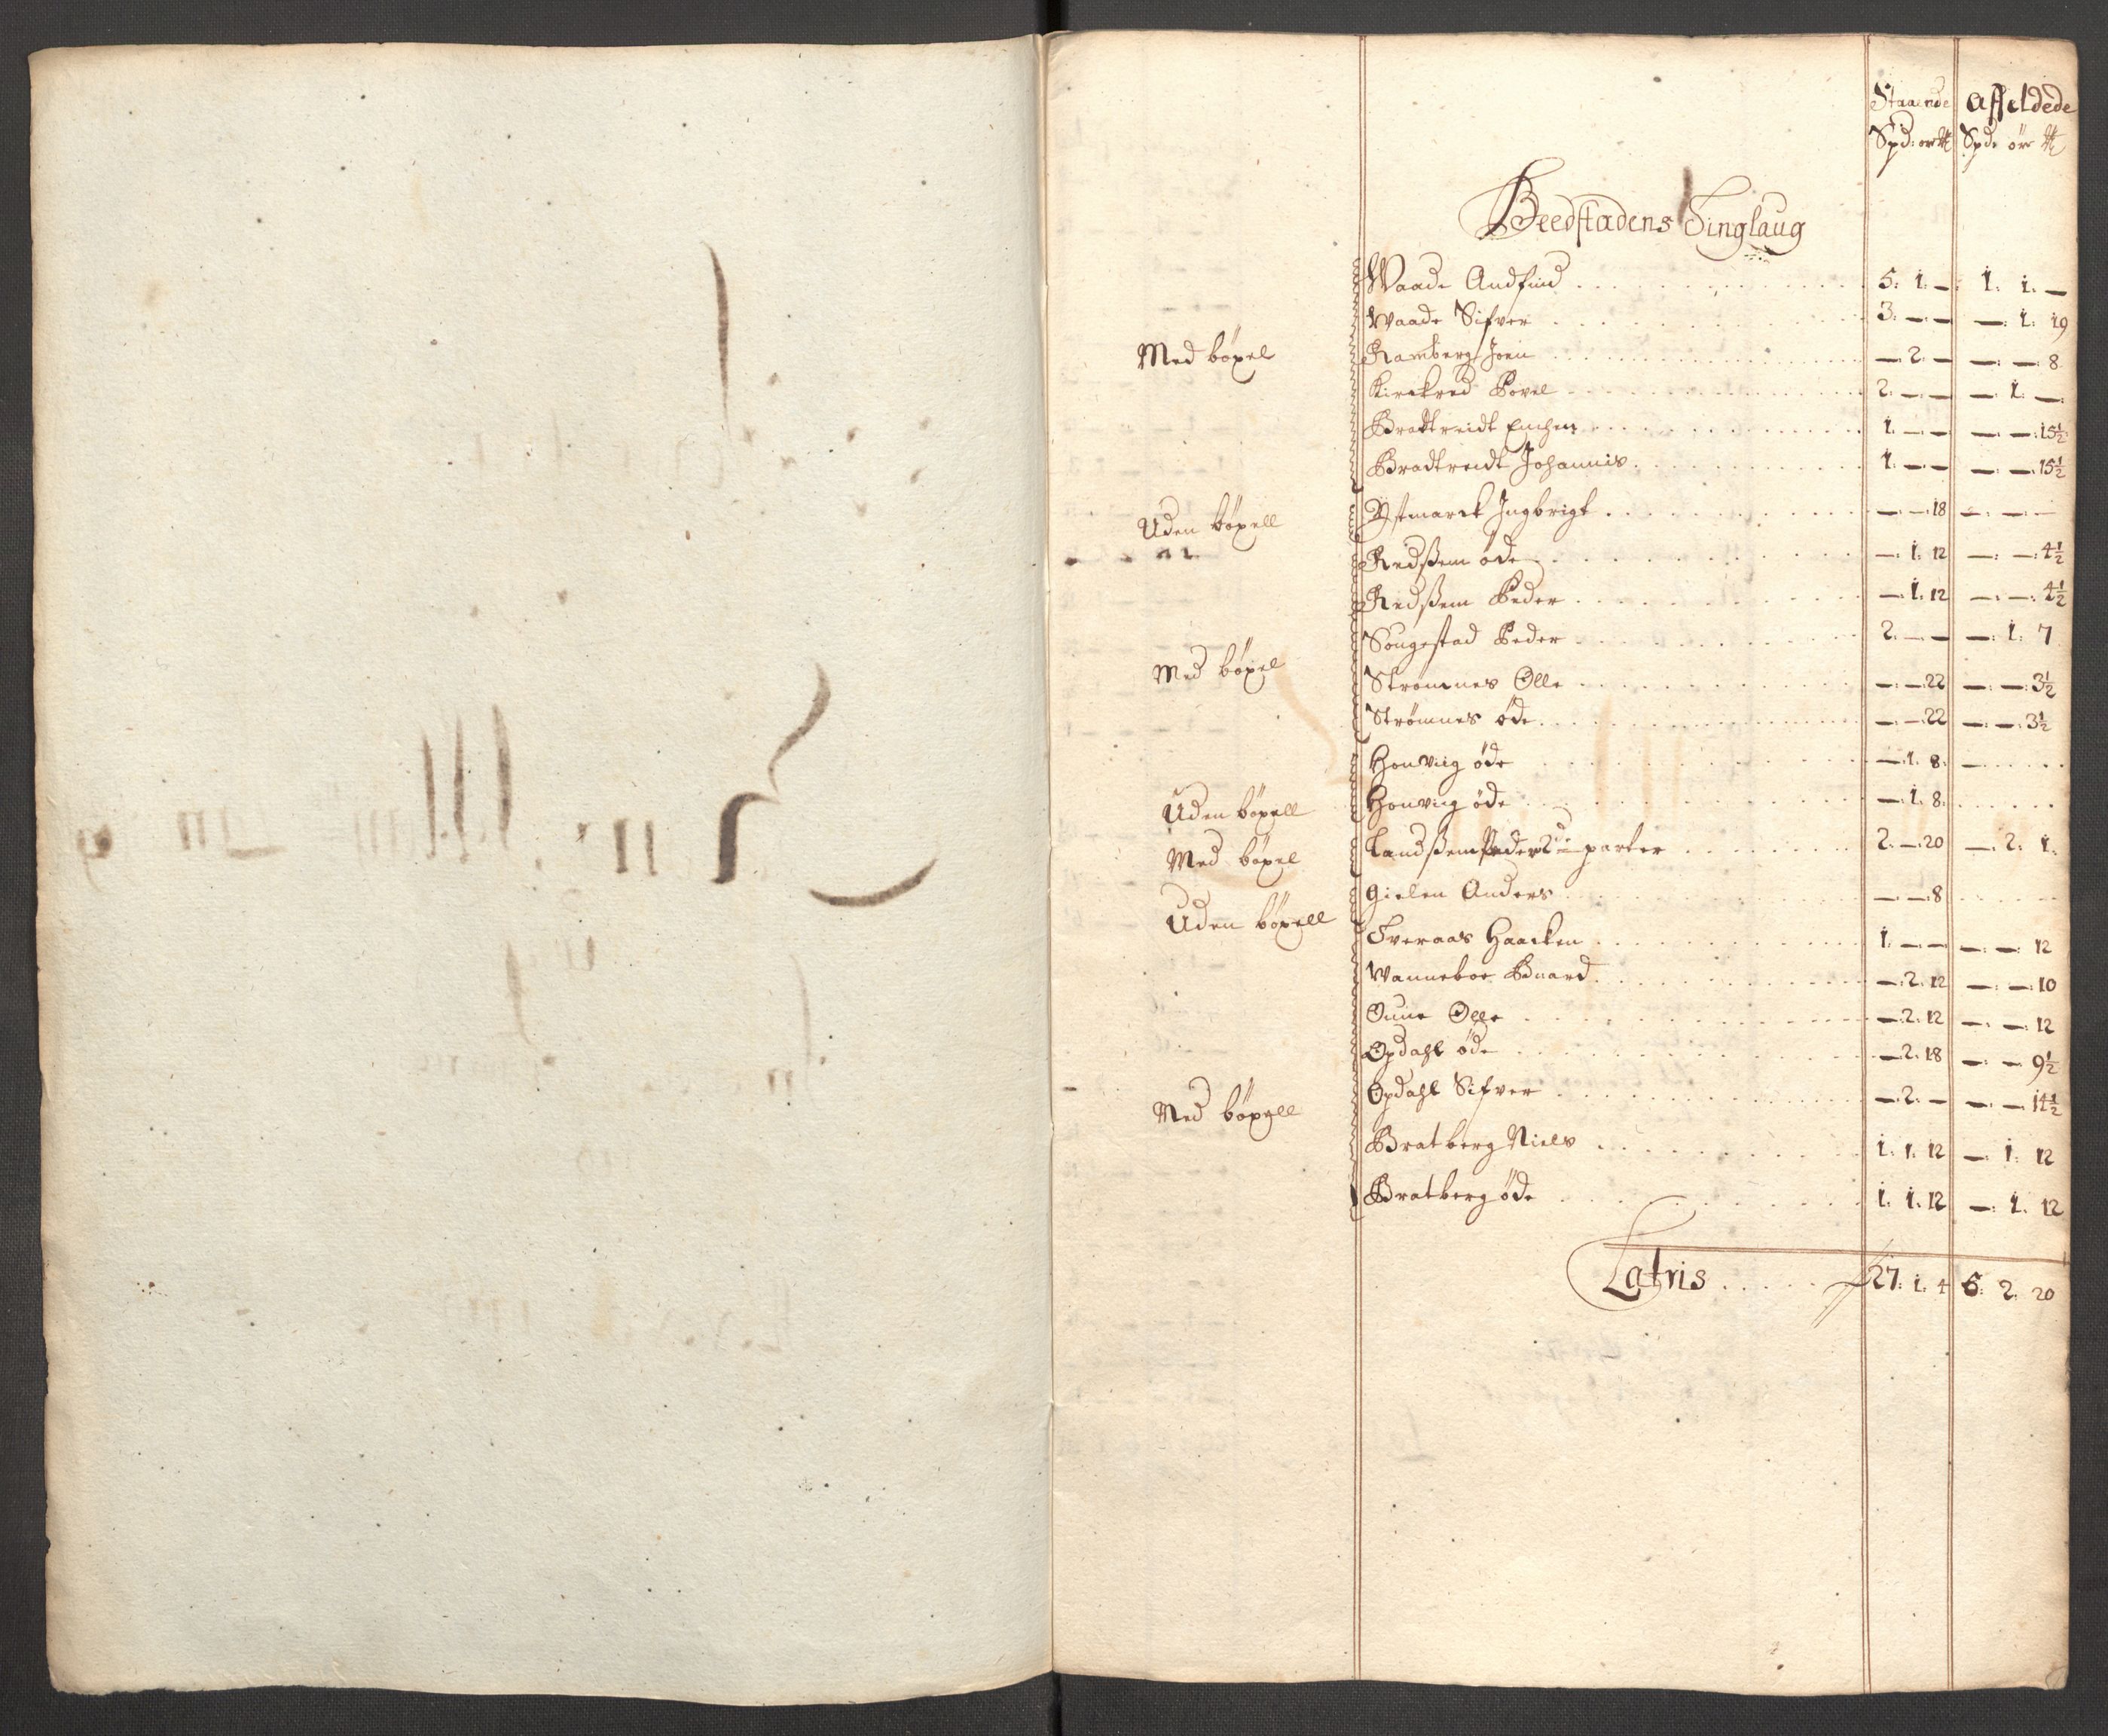 Staaende Affeldede
Spd: ør ℔ Spd: ør ℔
Beedstadens Tinglaug
Waade Andfind 5: 1: — 1: 1: —
Waade Sifver 3: — — —: 1: 19
Med böxel Ramberg Joen —: 2: — —: —: 8
Kirckreed Povel 2: —: — —: 1: —
Bradtreidt 1: —: — —: —: 15½
Bradtreidt Johannis 1: —: — —: —: 15½
Uden böxell Østmarck Ingbrigt —: —: 18 —: —: —
Redssem øde —: 1: 12 —: —: 4½
Redssem Peder —: 1: 12 —: —: 4½
Sougestad Peder 2: —: — —: 1: 7
Med böxel Strømnes Olle —: —: 22 —: —: 3½
Strømnes øde —: —: 22 —: —: 3½
Honviig øde —: 1: 8: —
Uden böxell Honviig øde —: 1: 8:
Med böxel Landssem Peder 2de parter 2: —: 20 —: 2: 1:
Uden böxell Gielen Anders —: —: 8
Tveraas Haacken 1: —: — —: —: 12
Wanneboe Baard —: 2: 12 —: —: 10
Oune Olle —: 2: 12 —: —: 12
Opdahl øde —: 2: 18 —: —: 9½
Med böxell Opdahl Sifver —: 2: — —: —: 14½
Bratberg Niels 1: 1: 12 —: 1: 12
Bratberg øde 1: 1: 12 —: 1: 12
Latris 27: 1: 4 6: 2: 20